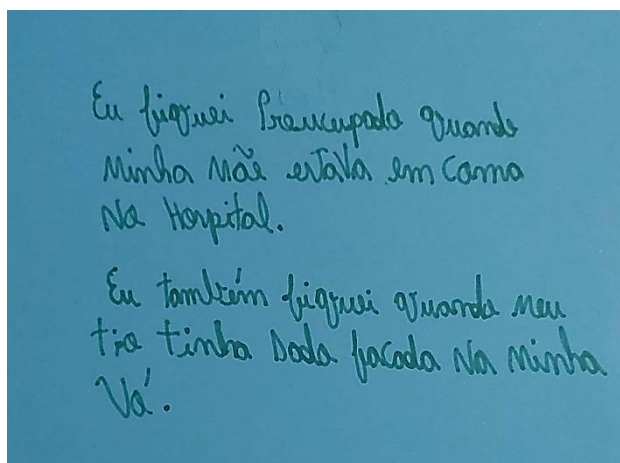 Eu fiquei Preucupado quando
minha mãe estava em coma
no Hospital.
Eu também fiquei quando meu
tio tinha dado facada na minha
Vó.